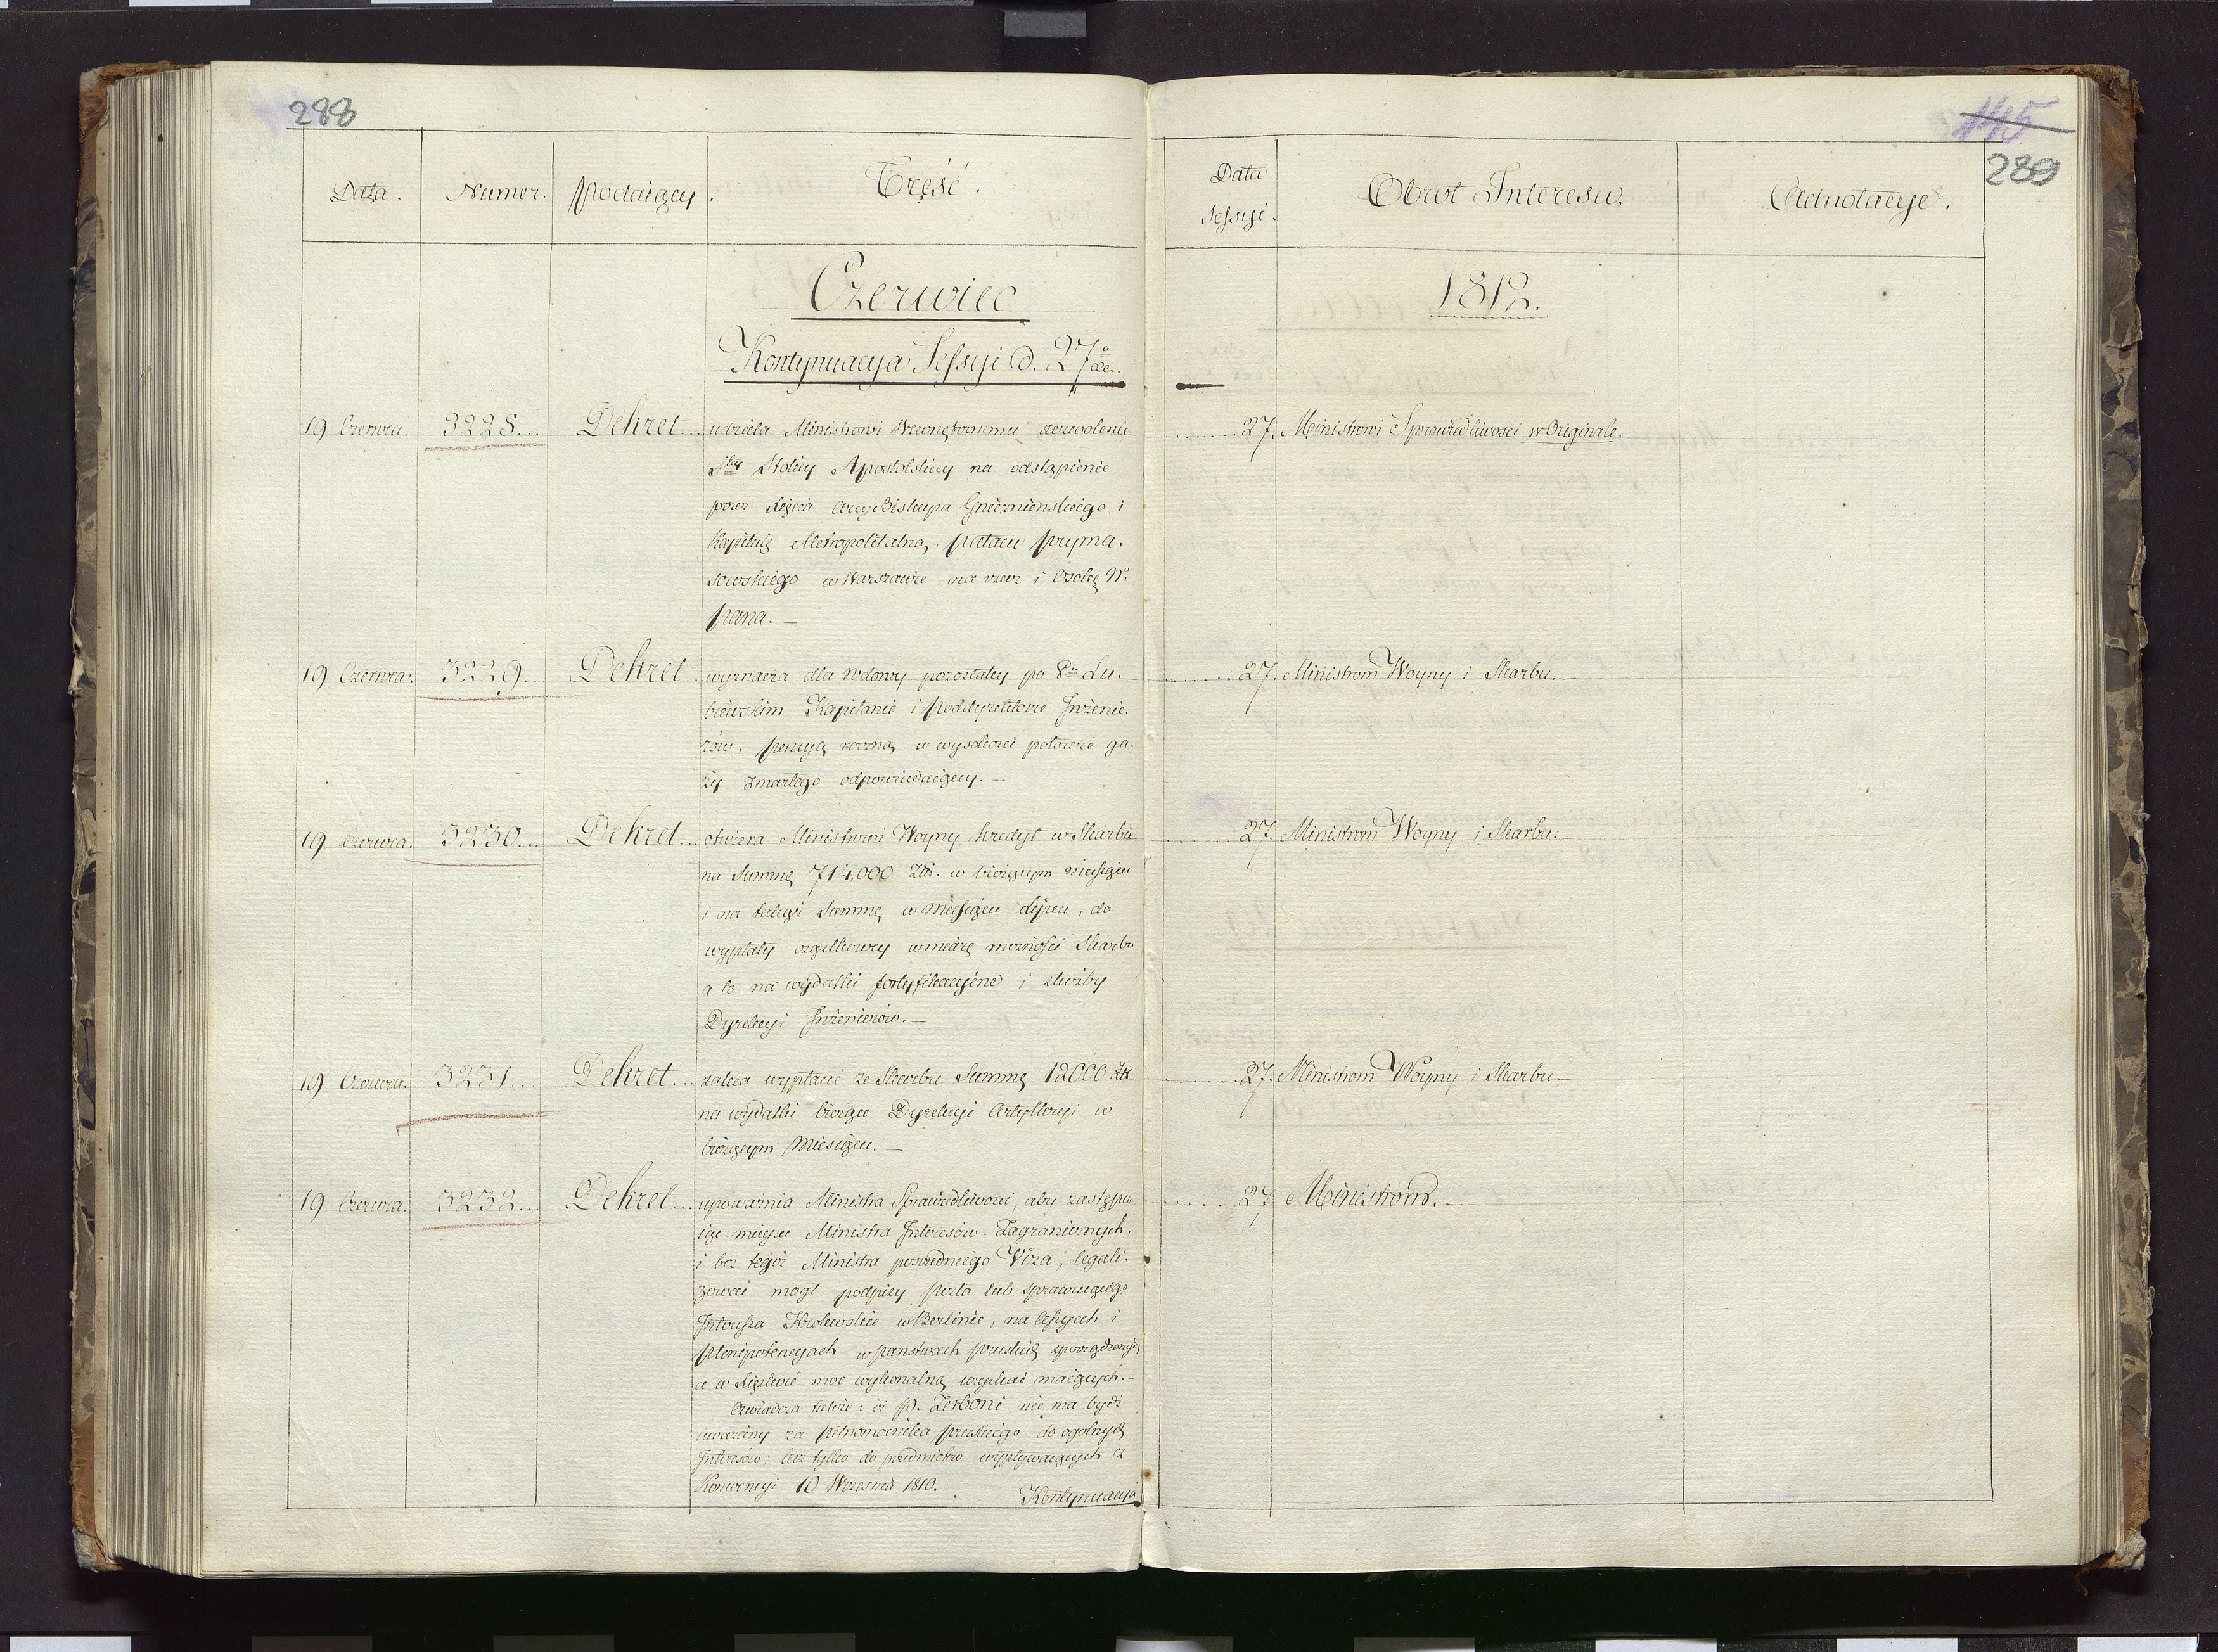 288
Data.
Numer.
Podaiący.
Treść.
Czerwiec
Kontynuacya Sessyi d. 27º
19 Czerwca. 3228... Dekret... udziela Ministrowi Wewnętrznemu zezwolenie
Stey Stolicy Apostolskiey na odstąpienie
przez Xięcia ArcyBiskupa Gnieznienskiego i
Kapitułę Metropolitalną pałacu pryma-
sowskiego w Warszawie, na rzecz i Osobę Nº
Pana. —
19 Czerwca. 3229... Dekret... wyznacza dla wdowy pozostałey po Pu Lu-
biewskim Kapitanie i Poddyrektorze Inżenie-
rów, pensyą roczną w wysokości połowie ga-
ży zmarłego odpowiadaiącey. —
19 Czerwca. 3230... Dekret... otwiera Ministrowi Woyny kredyt w Skarbie
na Summę 714,000 Złł. w bieżącym miesiącu
i na takąż Summę w Miesiącu Lipcu, do
wypłaty cząstkowey w miarę możności Skarbu
a to na wydatki fortyfikacyjne i służby
Dyrekcyi Inżenierów. —
19 Czerwca. 3231... Dekret... zaleca wypłacić ze Skarbu Summę 12000 Złł
na wydatki bieżące Dyrekcyi Artylleryi w
bieżącym Miesiącu. —
19 Czerwca. 3232... Dekret... upoważnia Ministra Sprawiedliwości, aby zastępu-
iąc mieysce Ministra Interesów Zagranicznych,
i bez tegoż Ministra poprzedniego Viza, legali-
zować mógł podpisy Posła lub sprawuiącego
Interessa Krolewskie w Berlinie, na Cessyach i
Plenipotencyach w państwach pruskich sporządzonych,
a w Xięstwie moc wykonalną uzyskać maiących. —
Oświadcza także: iż P. Zerboni nie ma bydź
uważany za Pełnomocnika pruskiego do ogolnych
Interesów; lecz tylko do przedmiotów wypływaiących z
Konwencyi 10 Września 1810.
Kontynuacya
145
289
Data
Sessyi.
Obrot Interesu.
Adnotacye.
1812.
27. Ministrowi Sprawiedliwosci w Originale.
27. Ministrom Woyny i Skarbu. —
27. Ministrom Woyny i Skarbu. —
27. Ministrom Woyny i Skarbu. —
27. Ministrom. —